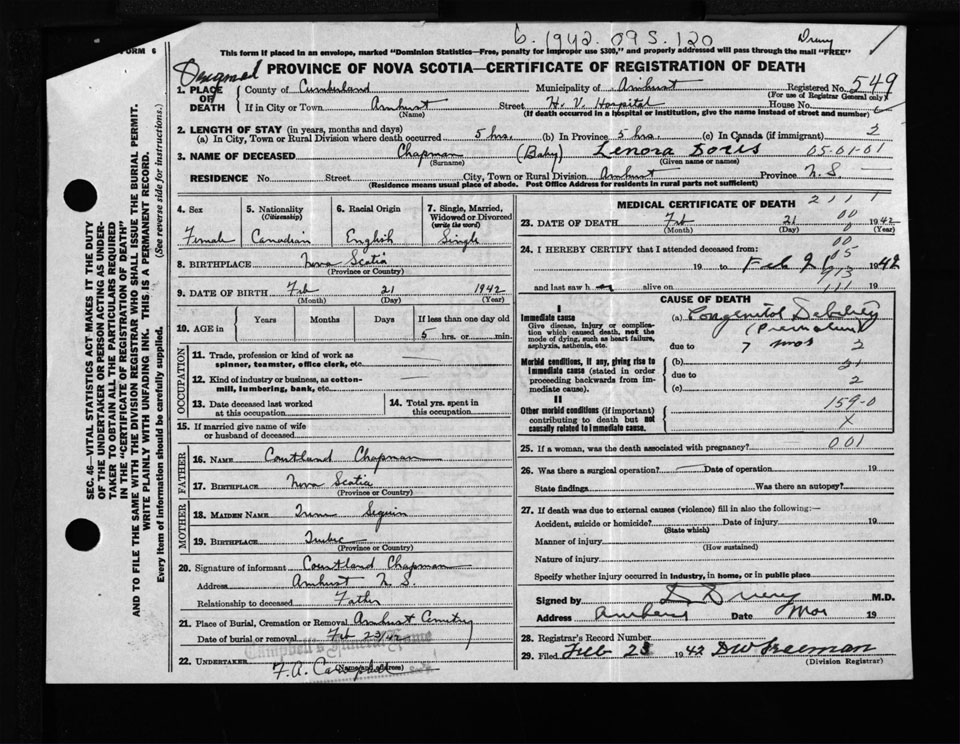 6. 1942. 09S. 120
Drury
FORM 6
This form if placed in an envelope, marked "Dominion Statistics—Free, penalty for improper use $300," and properly addressed will pass through the mail "FREE"
Original
PROVINCE OF NOVA SCOTIA—CERTIFICATE OF REGISTRATION OF DEATH
1. PLACE OF DEATH
County of Cumberland Municipality of Amherst Registered No. 549
(For use of Registrar General only)
If in City or Town Amherst Street H. V. Hospital House No.
(Name) (If death occurred in a hospital or institution, give the name instead of street and number)
2. LENGTH OF STAY (in years, months and days)
(a) In City, Town or Rural Division where death occurred 5 hrs. (b) In Province 5 hrs. (c) In Canada (if immigrant) 2
3. NAME OF DECEASED Chapman (Baby) Lenora Doris 05-01-01
(Surname) (Given name or names)
RESIDENCE No. Street City, Town or Rural Division Amherst Province N. S.
(Residence means usual place of abode. Post Office Address for residents in rural parts not sufficient)
4. Sex
Female
5. Nationality
(Citizenship)
Canadian
6. Racial Origin
English
7. Single, Married, Widowed or Divorced
(write the word)
Single
8. BIRTHPLACE Nova Scotia
(Province or Country)
9. DATE OF BIRTH Feb 21 1942
(Month) (Day) (Year)
10. AGE in Years Months Days If less than one day old
5 hrs. or min.
OCCUPATION
11. Trade, profession or kind of work as spinner, teamster, office clerk, etc.
12. Kind of industry or business, as cotton-mill, lumbering, bank, etc.
13. Date deceased last worked at this occupation
14. Total yrs. spent in this occupation
15. If married give name of wife or husband of deceased
FATHER
16. NAME Courtland Chapman
17. BIRTHPLACE Nova Scotia
(Province or Country)
MOTHER
18. MAIDEN NAME Seguin
19. BIRTHPLACE Quebec
(Province or Country)
20. Signature of informant Courtland Chapman
Address Amherst N. S.
Relationship to deceased Father
21. Place of Burial, Cremation or Removal Amherst Cemetery
Date of burial or removal Feb 23/42
Campbell's Funeral Home
22. UNDERTAKER F. A. Campbell
(Name and address)
MEDICAL CERTIFICATE OF DEATH 2111
23. DATE OF DEATH Feb 21 1942
(Month) (Day) (Year)
00
0
24. I HEREBY CERTIFY that I attended deceased from:
00
05
19 to Feb 21 1942
and last saw h er alive on 111 19
CAUSE OF DEATH
I
Immediate cause
Give disease, injury or complication which caused death, not the mode of dying, such as heart failure, asphyxia, asthenia, etc.
(a) Congenital Debility
(Premature)
due to 7 mos 2
Morbid conditions, if any, giving rise to immediate cause (stated in order proceeding backwards from immediate cause).
(b) 21
due to
(c) 2
II
Other morbid conditions (if important) contributing to death but not causally related to immediate cause.
159-0
X
25. If a woman, was the death associated with pregnancy? 001
26. Was there a surgical operation? Date of operation 19
State findings Was there an autopsy?
27. If death was due to external causes (violence) fill in also the following:—
Accident, suicide or homicide? Date of injury 19
(State which)
Manner of injury
(How sustained)
Nature of injury
Specify whether injury occurred in industry, in home, or in public place
Signed by Drury M.D.
Address Amherst Date 19
28. Registrar's Record Number
29. Filed Feb 23 1942 DW Freeman
(Division Registrar)
SEC. 46—VITAL STATISTICS ACT MAKES IT THE DUTY
OF THE UNDERTAKER OR PERSON ACTING AS UNDER-
TAKER TO OBTAIN ALL THE PARTICULARS REQUIRED
IN THE "CERTIFICATE OF REGISTRATION OF DEATH"
AND TO FILE THE SAME WITH THE DIVISION REGISTRAR WHO SHALL ISSUE THE BURIAL PERMIT.
WRITE PLAINLY WITH UNFADING INK. THIS IS A PERMANENT RECORD.
Every item of information should be carefully supplied. (See reverse side for instructions.)